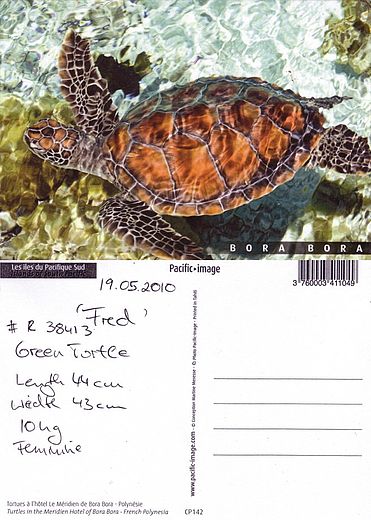 BORA BORA
Les îles du Pacifique Sud
Pacific·image
3 760003 411049
19.05.2010
'Fred'
# R 38413
Green Turtle
Length 44 cm
Width 43 cm
10 kg
Feminine
www.pacific-image.com - © Conception Martine Merense - © Photo Pacific-Image - Printed in Tahiti
Tortues à l'hôtel Le Méridien de Bora Bora - Polynésie
Turtles in the Meridien Hotel of Bora Bora - French Polynesia
CP142